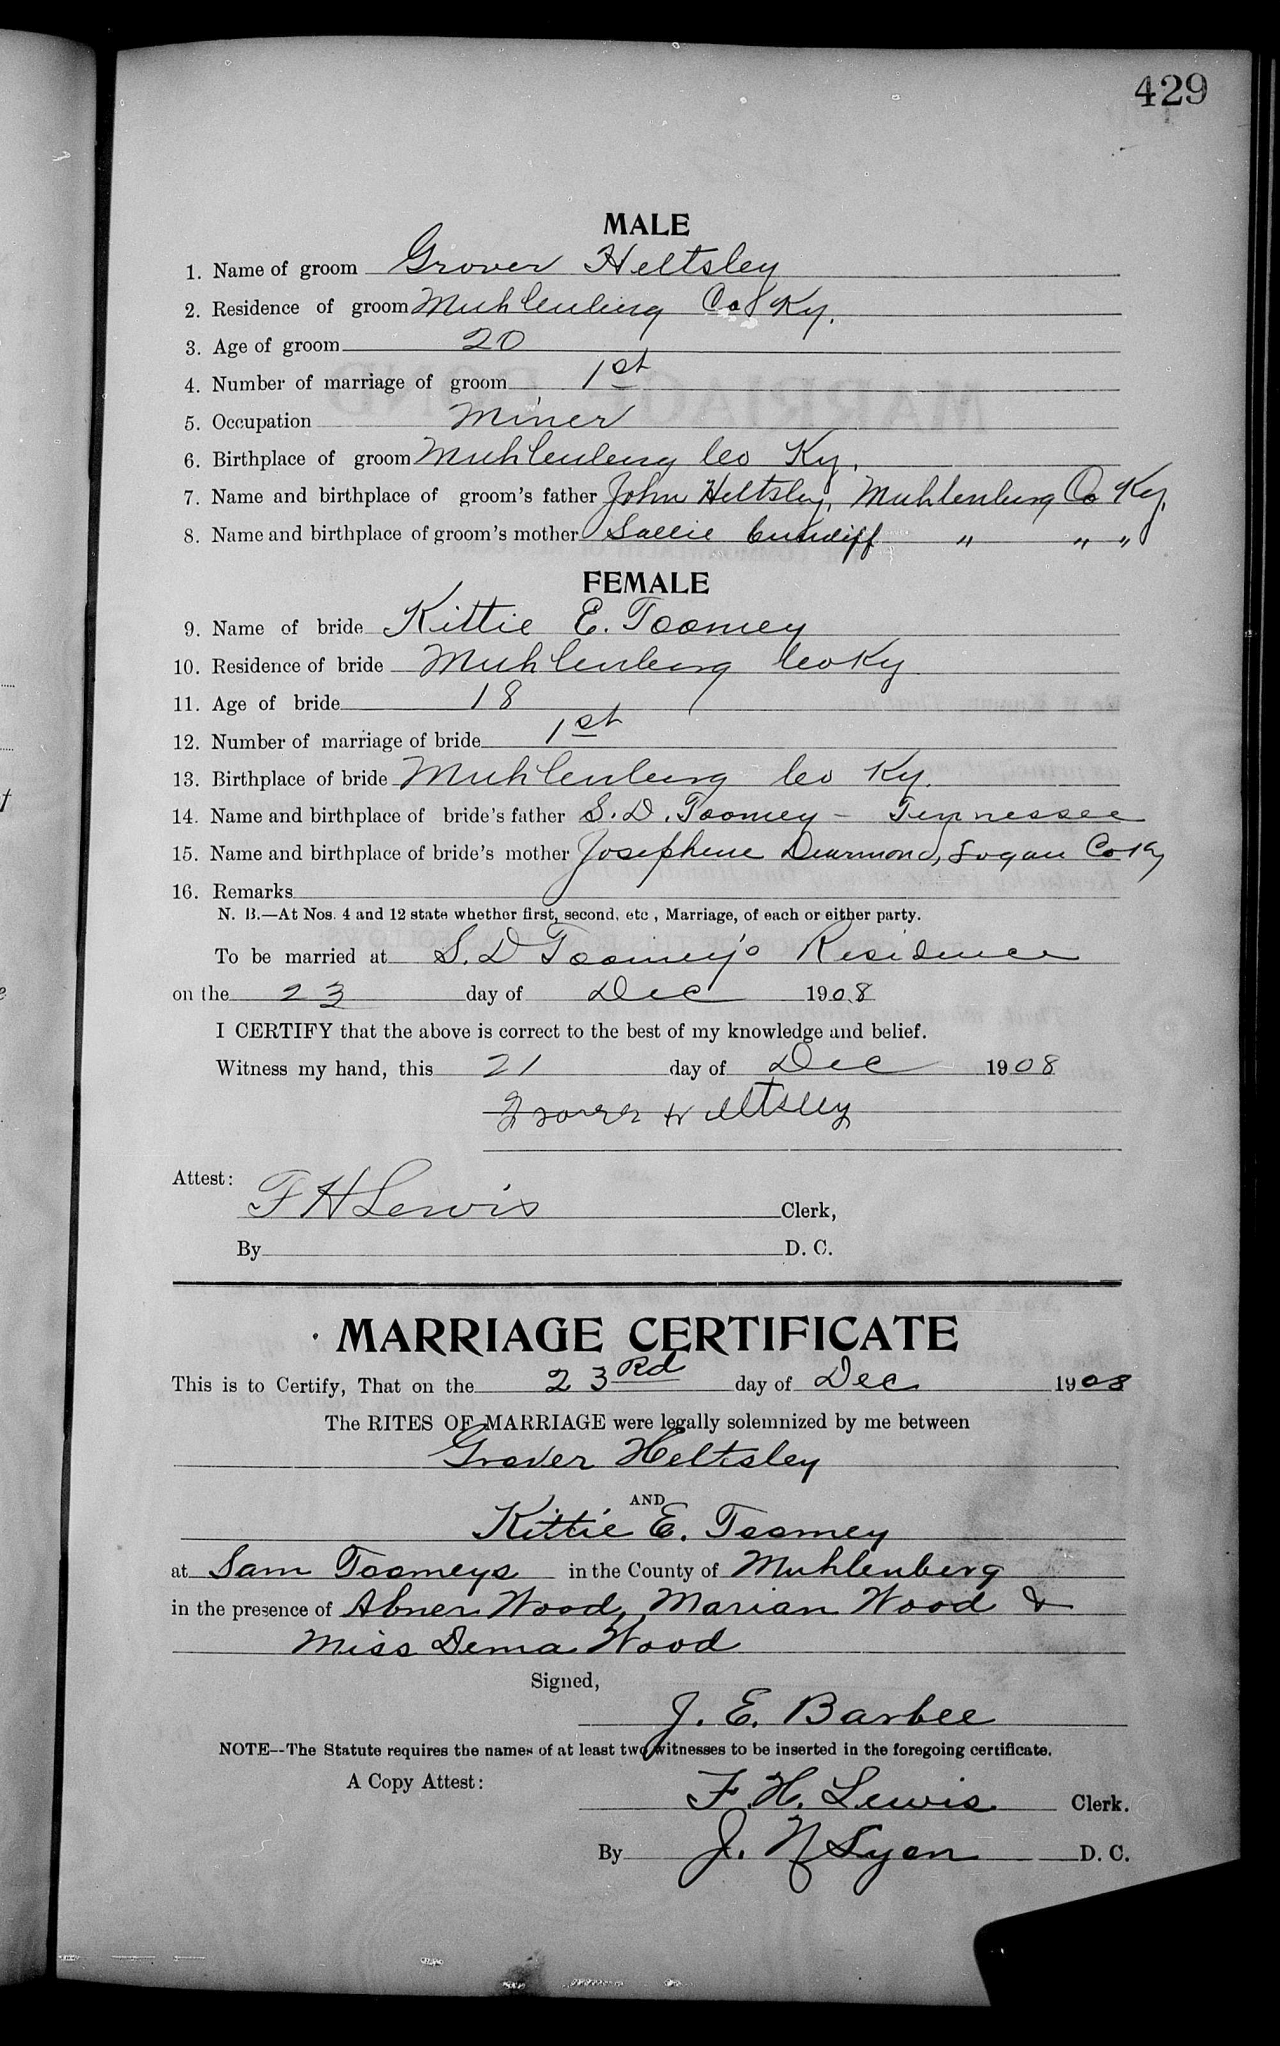 429
MALE
1. Name of groom Grover Heltsley
2. Residence of groom Muhlenberg Co Ky.
3. Age of groom 20
4. Number of marriage of groom 1st
5. Occupation Miner
6. Birthplace of groom Muhlenberg Co Ky.
7. Name and birthplace of groom's father John Heltsley, Muhlenburg Co Ky.
8. Name and birthplace of groom's mother Sallie Cundiff " " "
FEMALE
9. Name of bride Kittie E. Toomey
10. Residence of bride Muhlenberg Co Ky
11. Age of bride 18
12. Number of marriage of bride 1st
13. Birthplace of bride Muhlenberg Co Ky.
14. Name and birthplace of bride's father S. D. Toomey - Tennessee
15. Name and birthplace of bride's mother Josephene Dearmond, Logan Co Ky
16. Remarks
N. B.—At Nos. 4 and 12 state whether first, second, etc , Marriage, of each or either party.
To be married at S. D Toomey's Residence
on the 23 day of Dec 1908
I CERTIFY that the above is correct to the best of my knowledge and belief.
Witness my hand, this 21 day of Dec 1908
Grover Heltsley
Attest: F H Lewis Clerk,
By D. C.
MARRIAGE CERTIFICATE
This is to Certify, That on the 23Rd day of Dec 1908
The RITES OF MARRIAGE were legally solemnized by me between
Grover Heltsley
AND
Kittie E. Toomey
at Sam Toomeys in the County of Muhlenberg
in the presence of Abner Wood, Marian Wood &
Miss Dema Wood
Signed,
J. E. Barbee
NOTE--The Statute requires the names of at least two witnesses to be inserted in the foregoing certificate.
A Copy Attest: F. H. Lewis Clerk.
By J. N Lyon D. C.